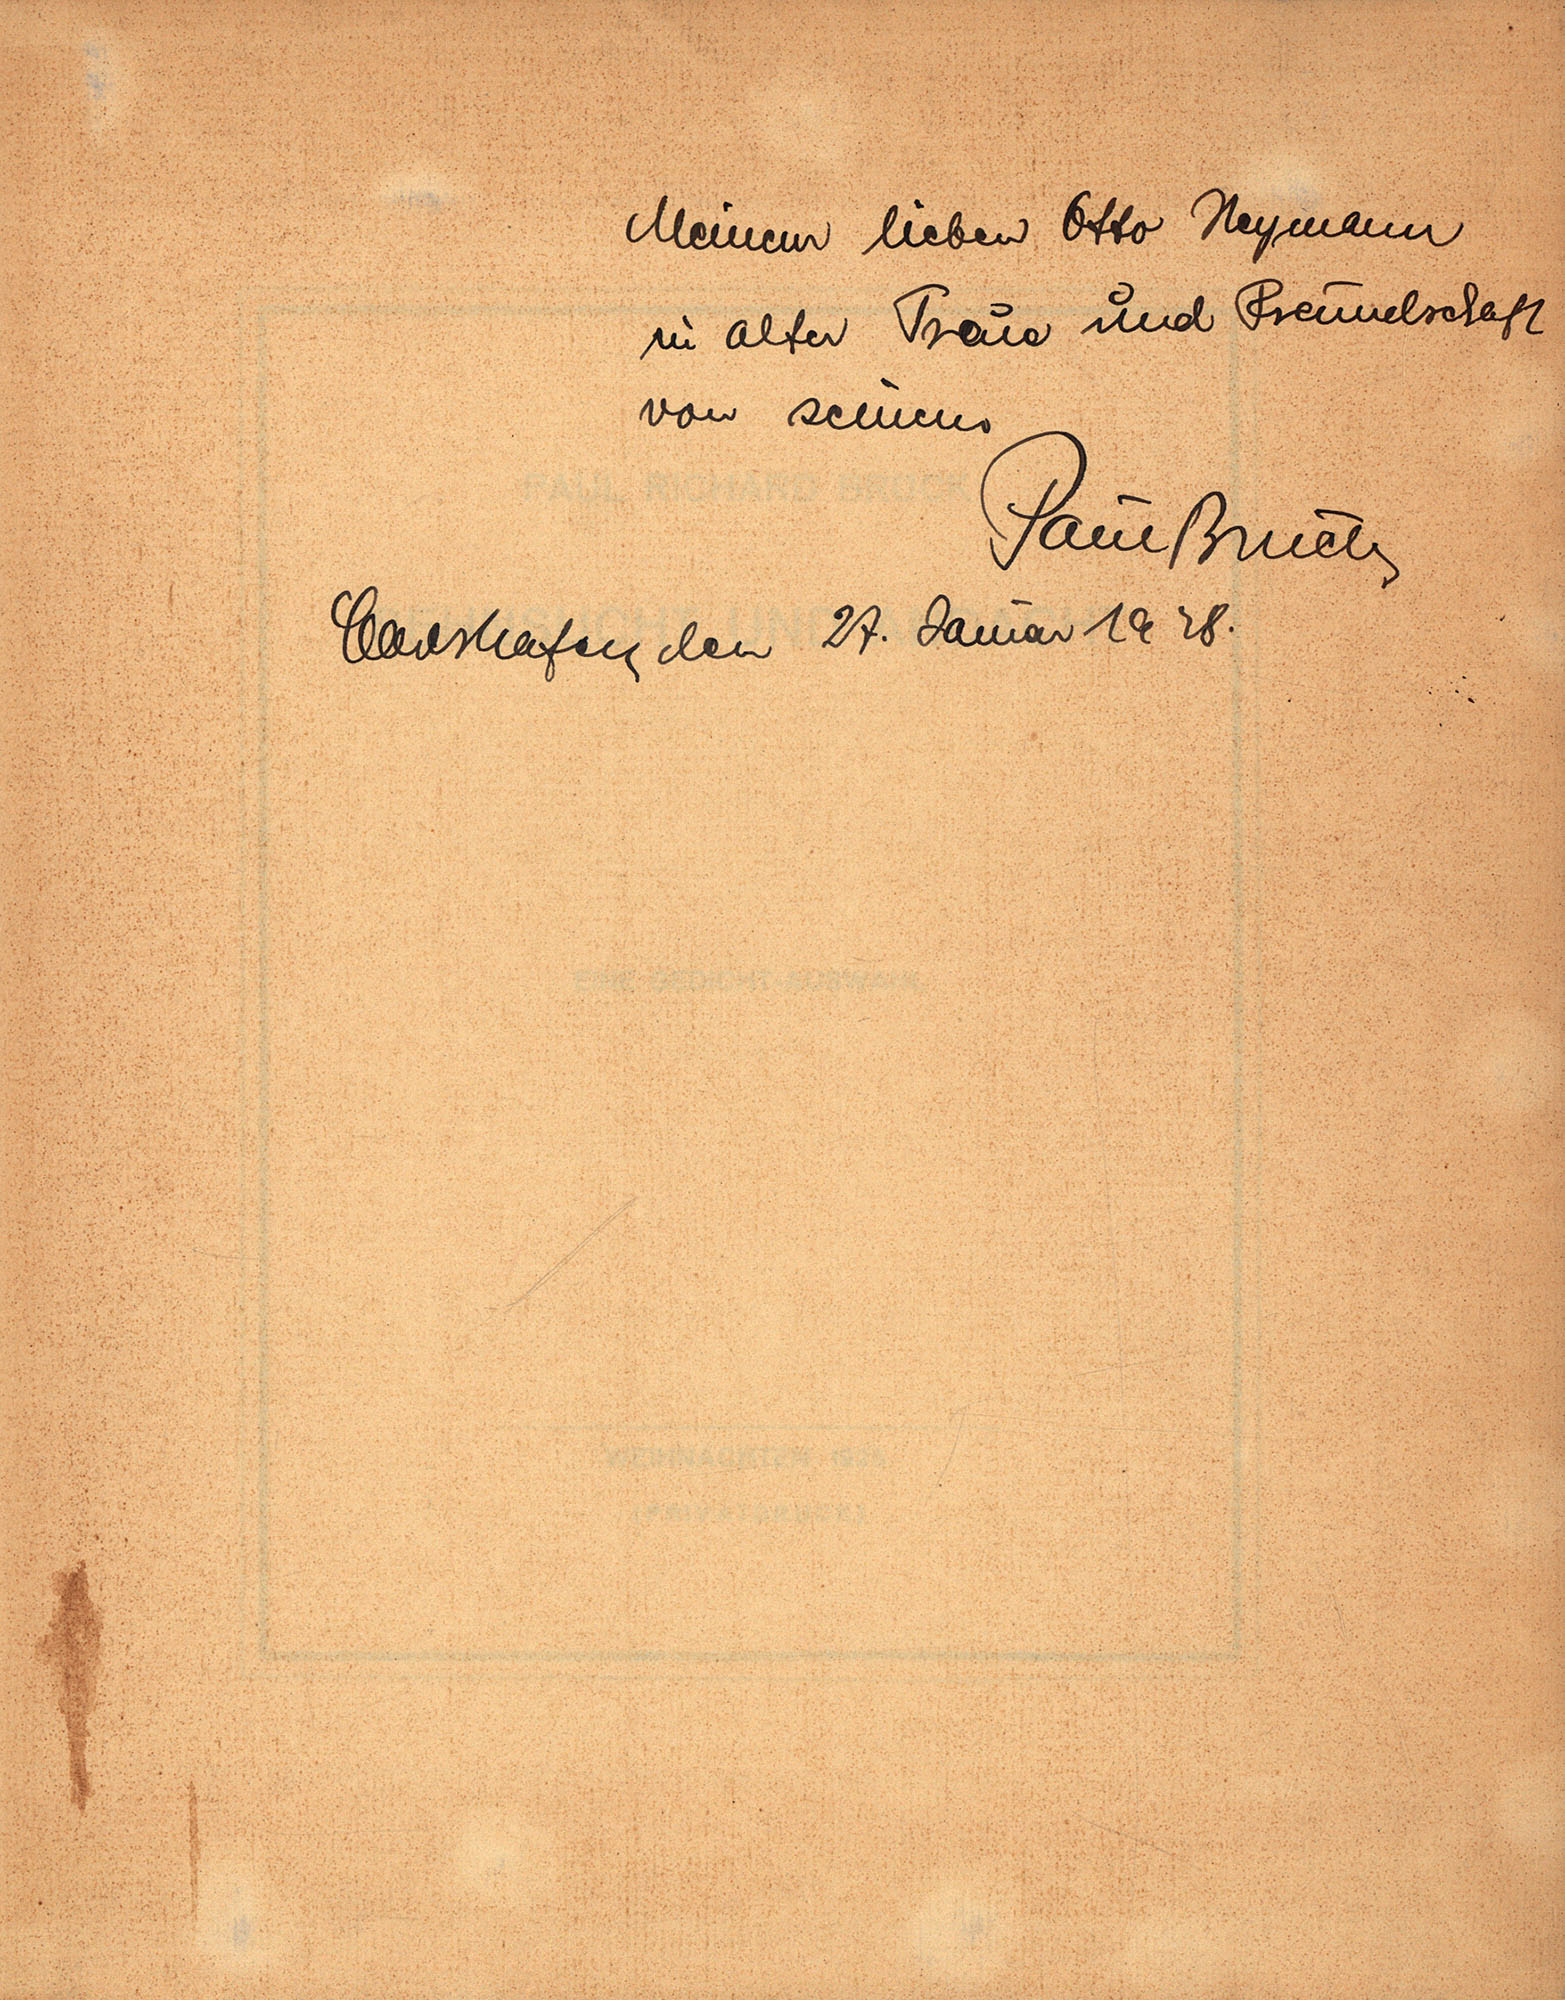 Meinem lieben Otto Heymann
in alter Treue und Freundschaft
von seinem
Paul Bruck
den 27. Januar 1928.
PAUL RICHARD BRUCK
UND
EINE GEDICHT-AUSWAHL
WEIHNACHTEN
(PRIVATDRUCK)